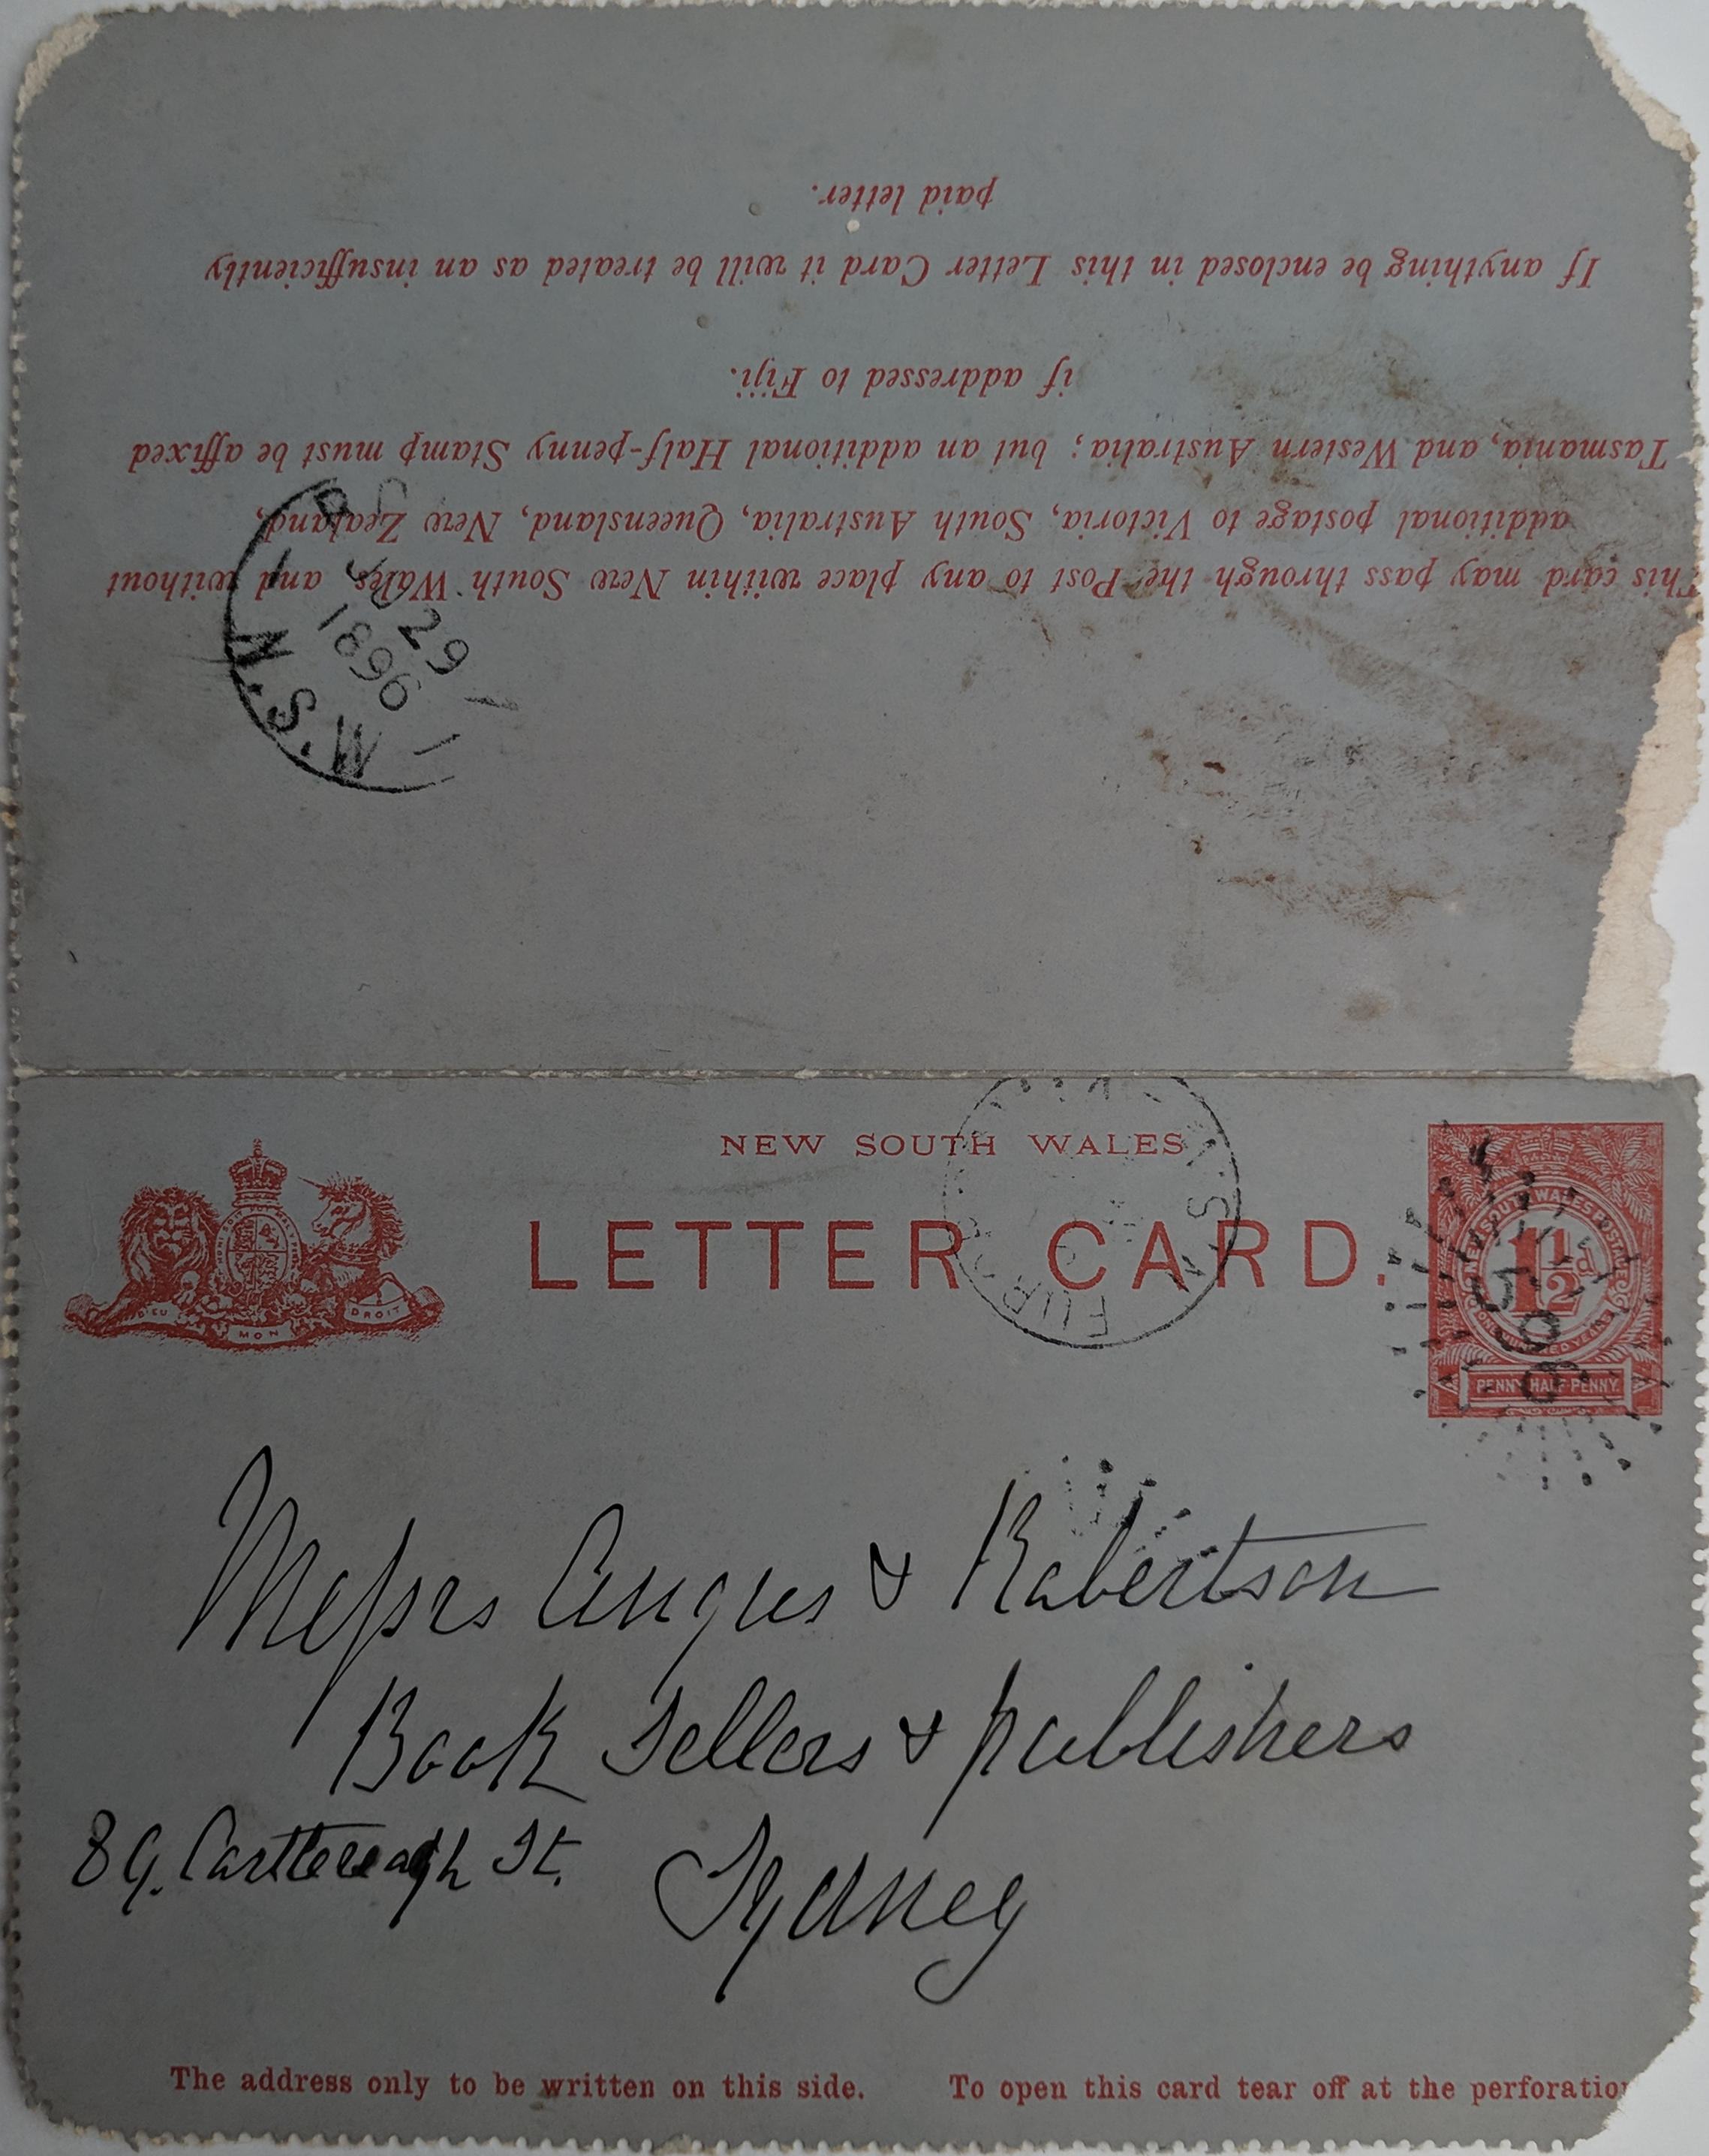 This card may pass through the Post to any place within New South Wales and without
additional postage to Victoria, South Australia, Queensland, New Zealand,
Tasmania, and Western Australia; but an additional Half-penny Stamp must be affixed
if addressed to Fiji.
If anything be enclosed in this Letter Card it will be treated as an insufficiently
paid letter.
JU 29
1896
N.S.W
NEW SOUTH WALES
LETTER CARD.
DIEU ET MON DROIT
NEW SOUTH WALES POSTAGE
1½d
PENNY HALF-PENNY
N.S.W
Messrs Angus & Robertson
Book Sellers & publishers
89. Castlereagh St. Sydney
The address only to be written on this side. To open this card tear off at the perforation